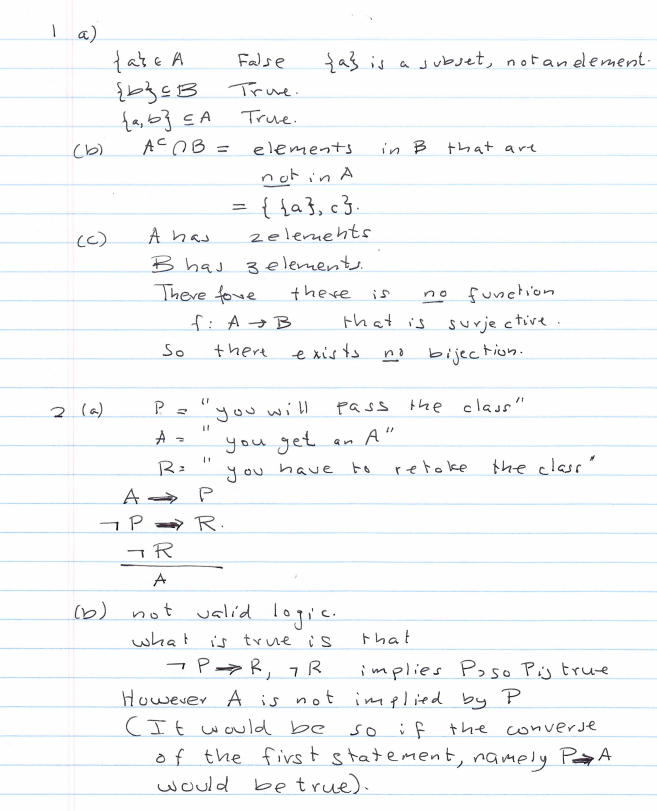 1 a)
{a} ∈ A False {a} is a subset, not an element.
{b} ⊆ B True.
{a,b} ⊆ A True.
(b) Aᶜ ∩ B = elements in B that are
not in A
= { {a}, c}.
(c) A has 2 elements
B has 3 elements.
Therefore there is no function
f: A → B that is surjective.
So there exists no bijection.
2 (a) P = "you will pass the class"
A = "you get an A"
R = "you have to retake the class"
A ⟹ P
¬P ⟹ R.
¬R
A
(b) not valid logic.
what is true is that
¬P ⟹ R, ¬R implies P, so P is true
However A is not implied by P
(It would be so if the converse
of the first statement, namely P ⟹ A
would be true).